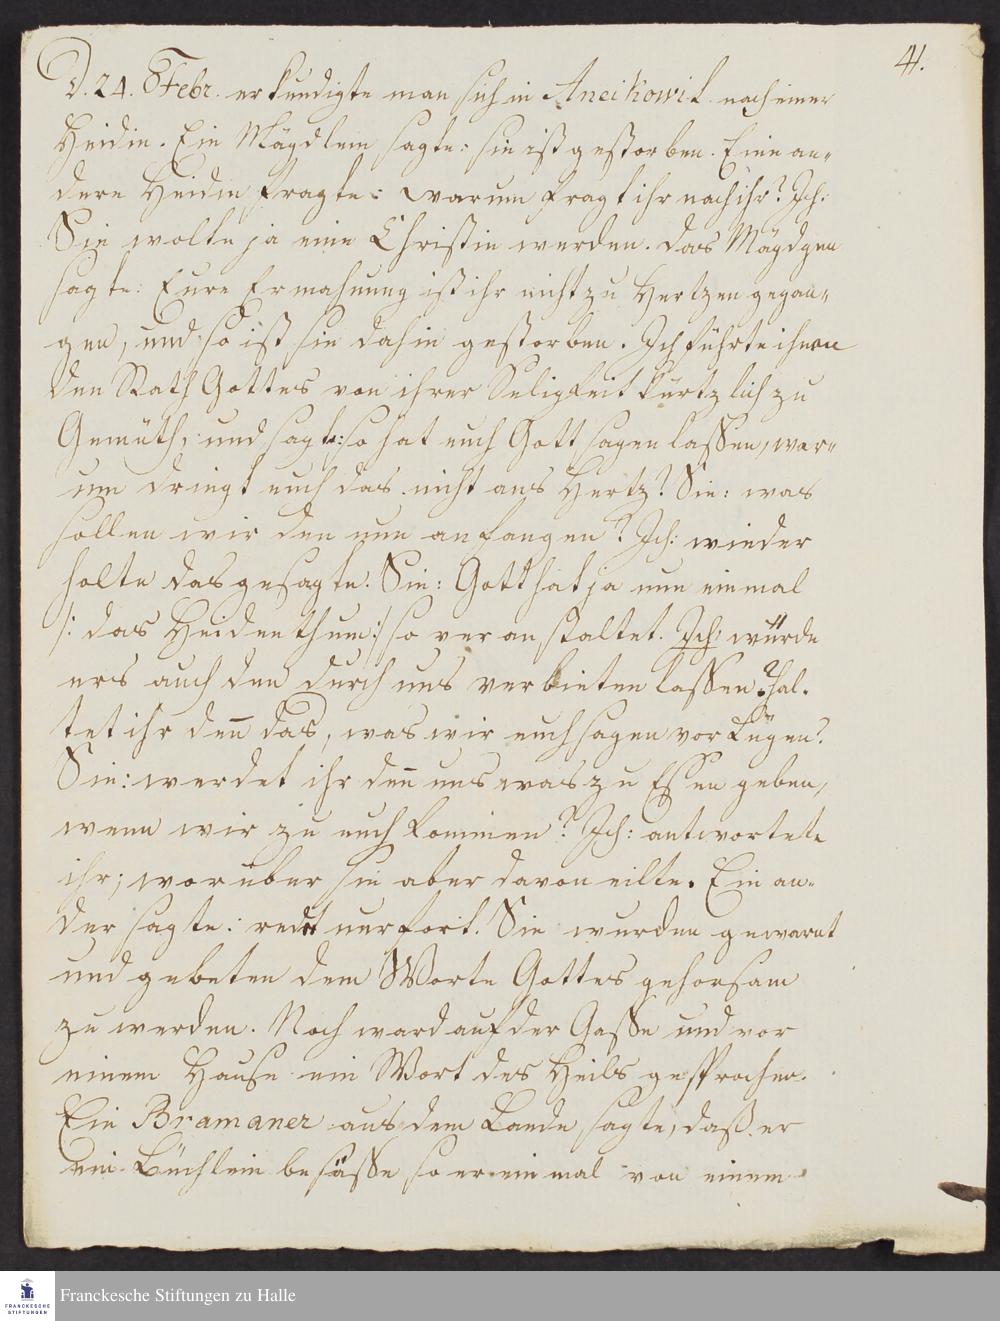 41.
D. 24. Febr. erkundigte man sich in Aneikowil nach einer
Heidin. Ein Mägdlein sagte: sie ist gestorben. Eine an-
dere Heidin fragte: warum fragt ihr nach ihr? Ich:
Sie wolte ja eine Christin werden. Das Mägdgen
sagte: Eure Ermahnung ist ihr nicht zu Hertzen gegan-
gen, und so ist sie dahin gestorben. Ich führte ihnen
den Rath Gottes von ihrer Seligkeit kürtzlich zu
Gemüth, und sagte: so hat euch Gott sagen lassen, war-
um dringt euch das nicht ans Hertz? Sie: was
sollen wir den nun anfangen? Ich: wieder
holte das gesagte. Sie: Gott hat ja nun einmal
/: das Heidenthum :/ so veranstaltet. Ich: würde
ers auch den durch uns verbieten lassen? Hal-
tet ihr den̅ das, was wir euch sagen vor Lügen?
Sie: werdet ihr den̅ uns was zu Essen geben,
wenn wir zu euch kommen? Ich: antwortete
ihr; worüber sie aber davon eilte. Ein an-
der sagte: redet nur fort. Sie wurden gewarnt
und gebeten dem Worte Gottes gehorsam
zu werden. Noch ward auf der Gasse und vor
einem Hause ein Wort des Heils gesprochen.
Ein Bramaner aus dem Lande sagte, daß er
ein Büchlein besässe so er einmal von einem
FRANCKESCHE
STIFTUNGEN
Franckesche Stiftungen zu Halle